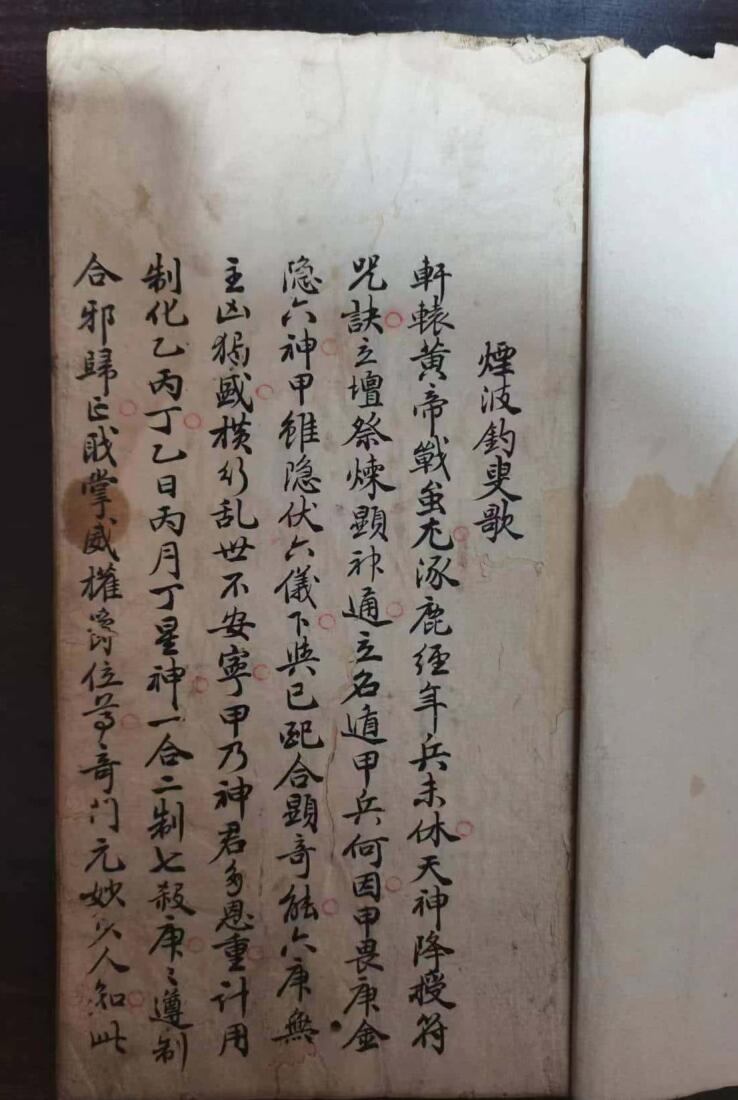 煙波釣叟歌
軒轅黃帝戰蚩尤涿鹿經年兵未休天神降授符
咒訣立壇祭煉顯神通立名遁甲兵何因甲畏庚金
隐六神甲雖隐伏六儀下與已配合顯奇能六庚無
主凶猖盛横行乱世不安寧甲乃神君多恩重計用
制化乙丙丁乙日丙月丁星神一合二制七殺庚〻遵制
合邪歸正戝掌威權爵位尊奇门元妙少人知此